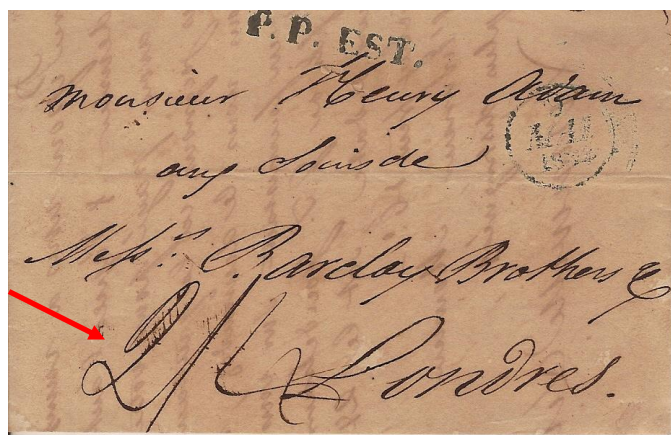 P. P. EST.
Monsieur Henry Adam
aux soins de
Mess.rs Barclay Brothers &
2/
Londres.